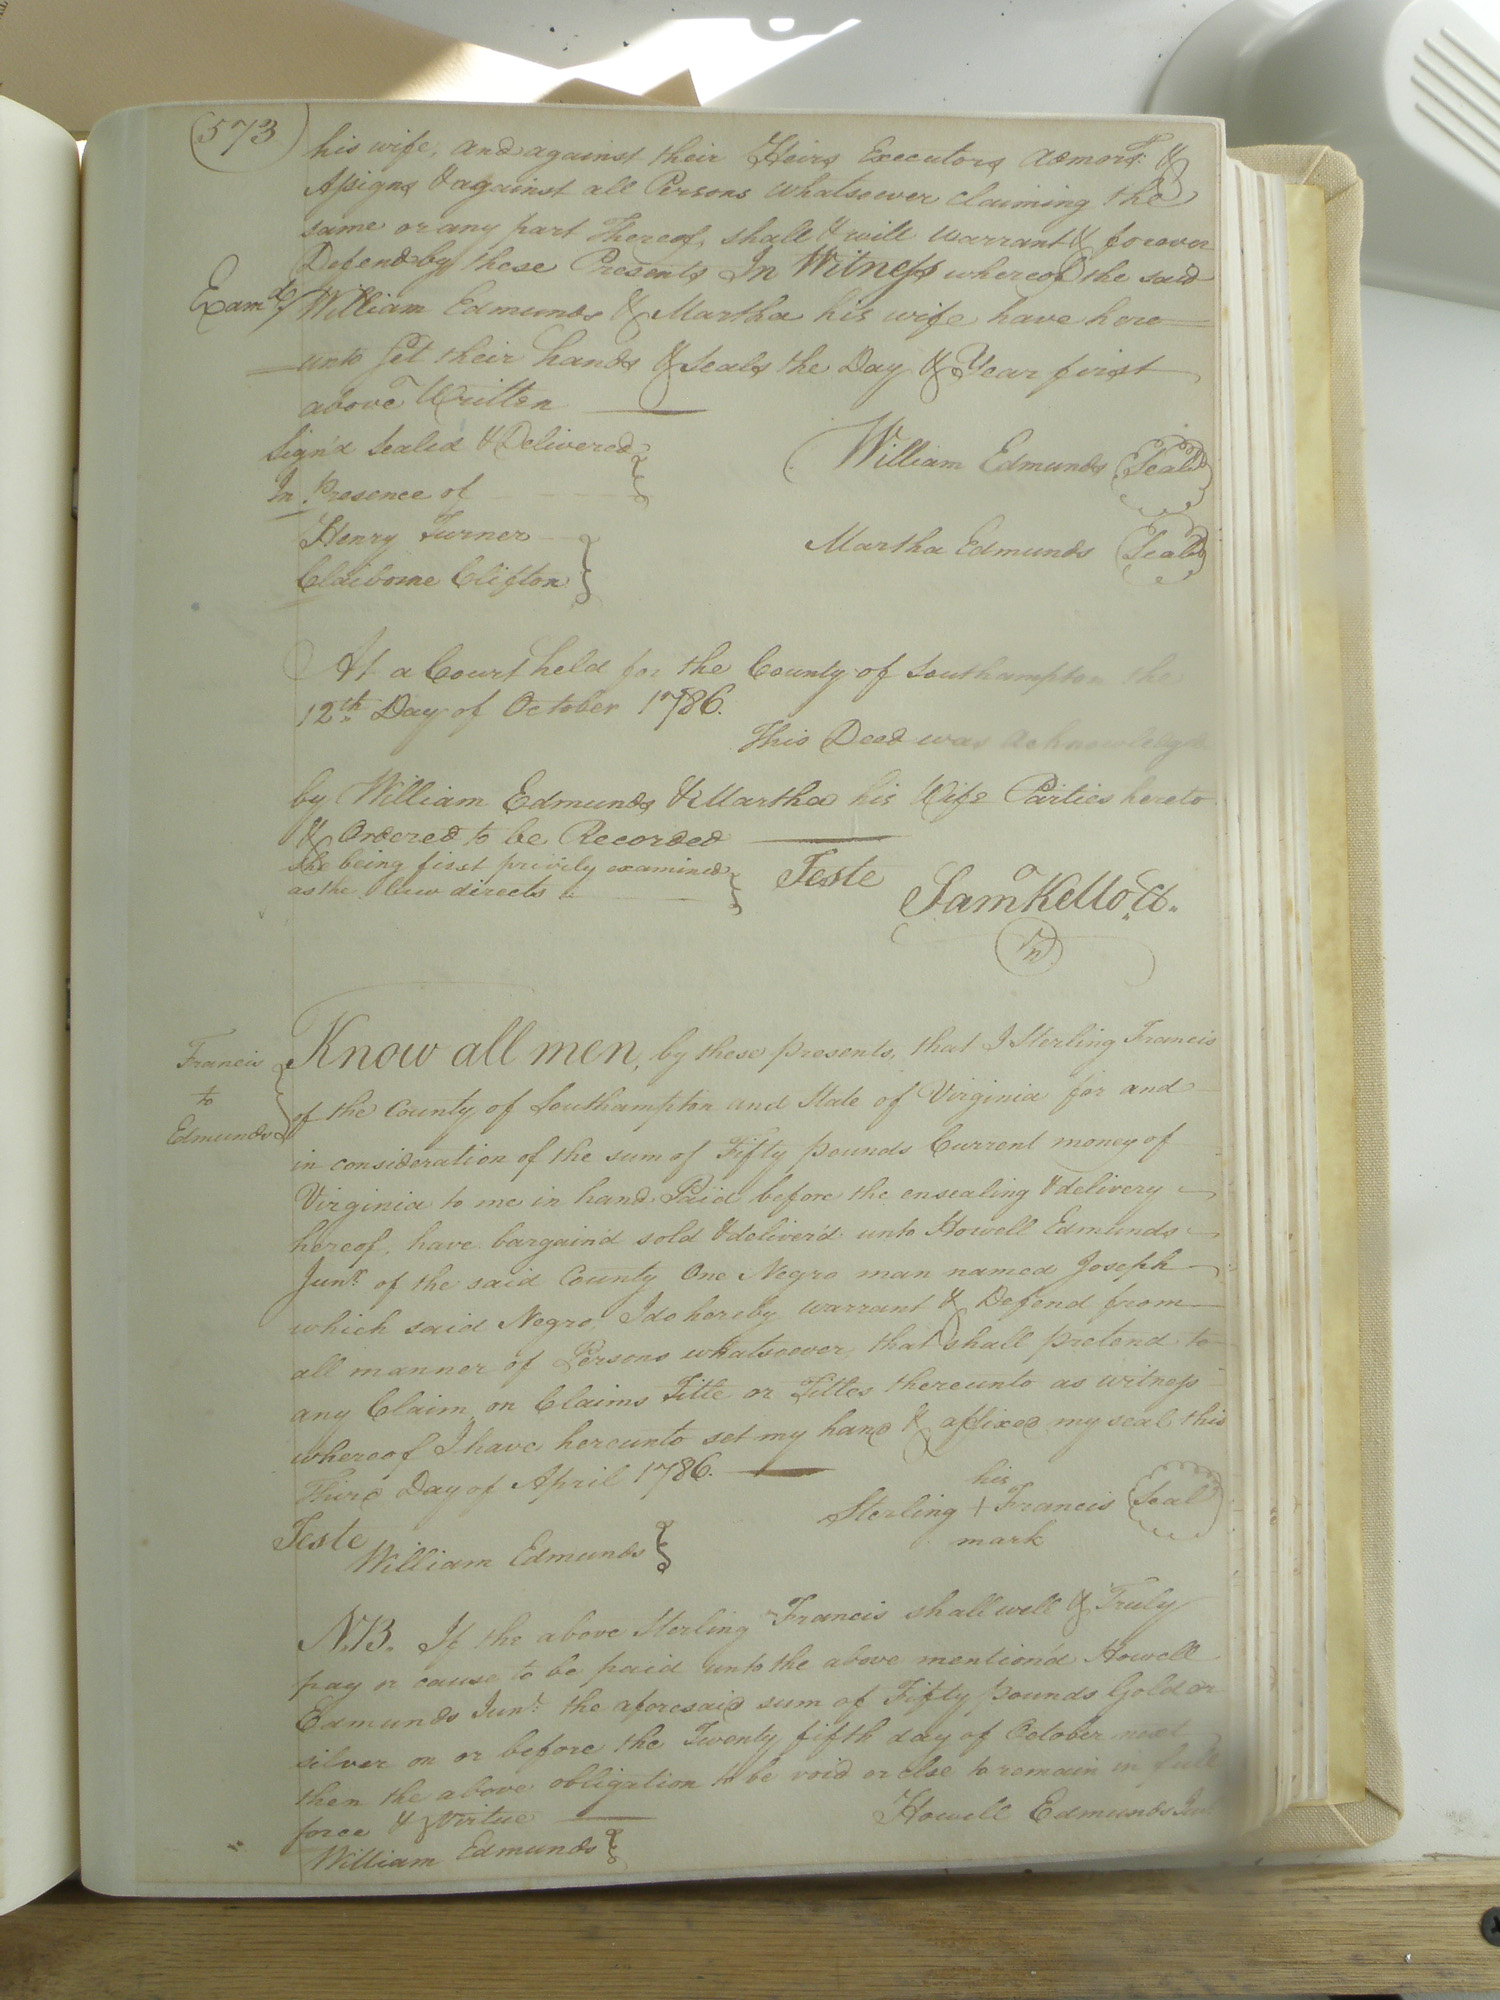 573
his wife, and against their Heirs Executors Admors. &
Assigns & against all Persons whatsoever claiming the
same or any part Thereof, shall & will warrant & forever
Defend by these Presents In Witness whereof the said
Examd.
William Edmunds & Martha his wife have here
unto Set their hands & Seals the Day & Year first
above Written
Sign'd Sealed & Delivered
In Presence of
Henry Turner
Claiborne Clifton
William Edmunds Seal
Martha Edmunds Seal
At a Court held for the County of Southampton the
12th Day of October 1786.
This Deed was Acknowledged
by William Edmunds & Martha his Wife Parties hereto
& Ordered to be Recorded
she being first privily examined
as the law directs
Teste
Saml Kello Cl.
Francis
to
Edmunds
Know all men, by these presents, that I Sterling Francis
of the County of Southampton and State of Virginia for and
in consideration of the sum of Fifty pounds Current money of
Virginia to me in hand Paid before the ensealing & delivery
hereof, have bargain'd sold & deliver'd unto Howell Edmunds
Junr. of the said County One Negro man named Joseph
which said Negro, I do hereby warrant & Defend from
all manner of Persons whatsoever, that shall pretend to
any Claim, on Claims Title or Titles thereunto as witness
whereof I have hereunto set my hand & affixed my seal this
Third Day of April 1786.
his
Sterling + Francis Seal
mark
Teste
William Edmunds
N.B. If the above Sterling Francis shall well & Truly
pay or cause to be paid unto the above mention'd Howell
Edmunds Junr. the aforesaid sum of Fifty pounds Gold or
silver on or before the Twenty fifth day of October next
then the above obligation to be void or else to remain in full
force & Virtue
Howell Edmunds Junr
William Edmunds